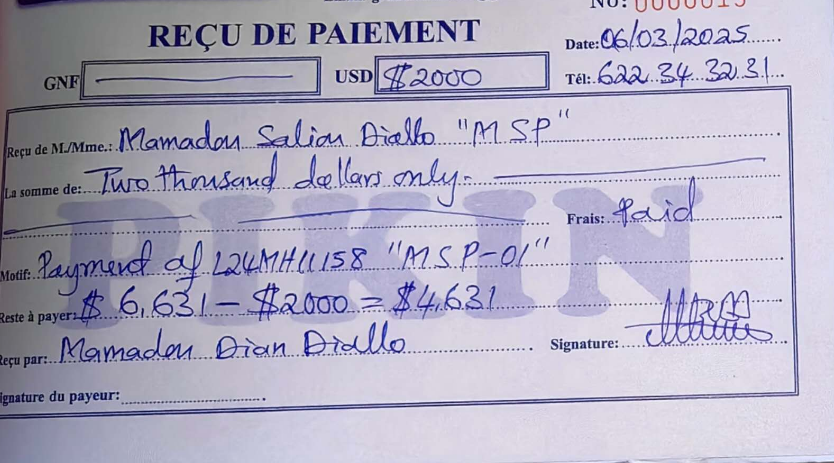 No: 0000015
REÇU DE PAIEMENT
Date: 06/03/2025
GNF
USD $2000
Tél: 622 34 32 31
Reçu de M./Mme.: Mamadou Saliou Diallo "MSP"
La somme de: Two thousand dollars only.
Frais: Paid
PIKIN
Motif: Payment of "MSP-01"
Reste à payer: $ 6,631 - $2000 = $4,631
Reçu par: Mamadou Dian Diallo
Signature:
Signature du payeur: